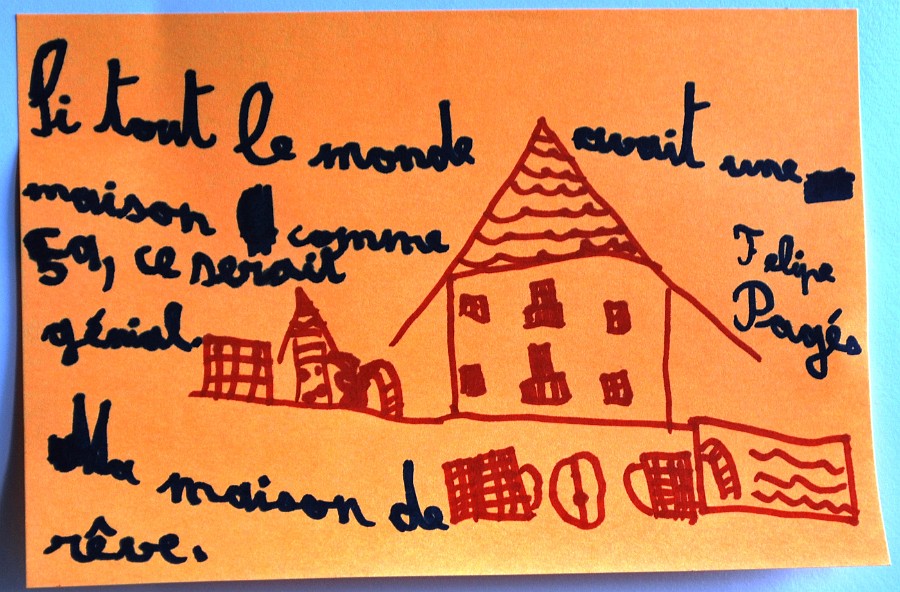 Si tout le monde avait une
maison comme
ça, ce serait
génial.
Felipe
Pagés
Ma maison de
rêve.